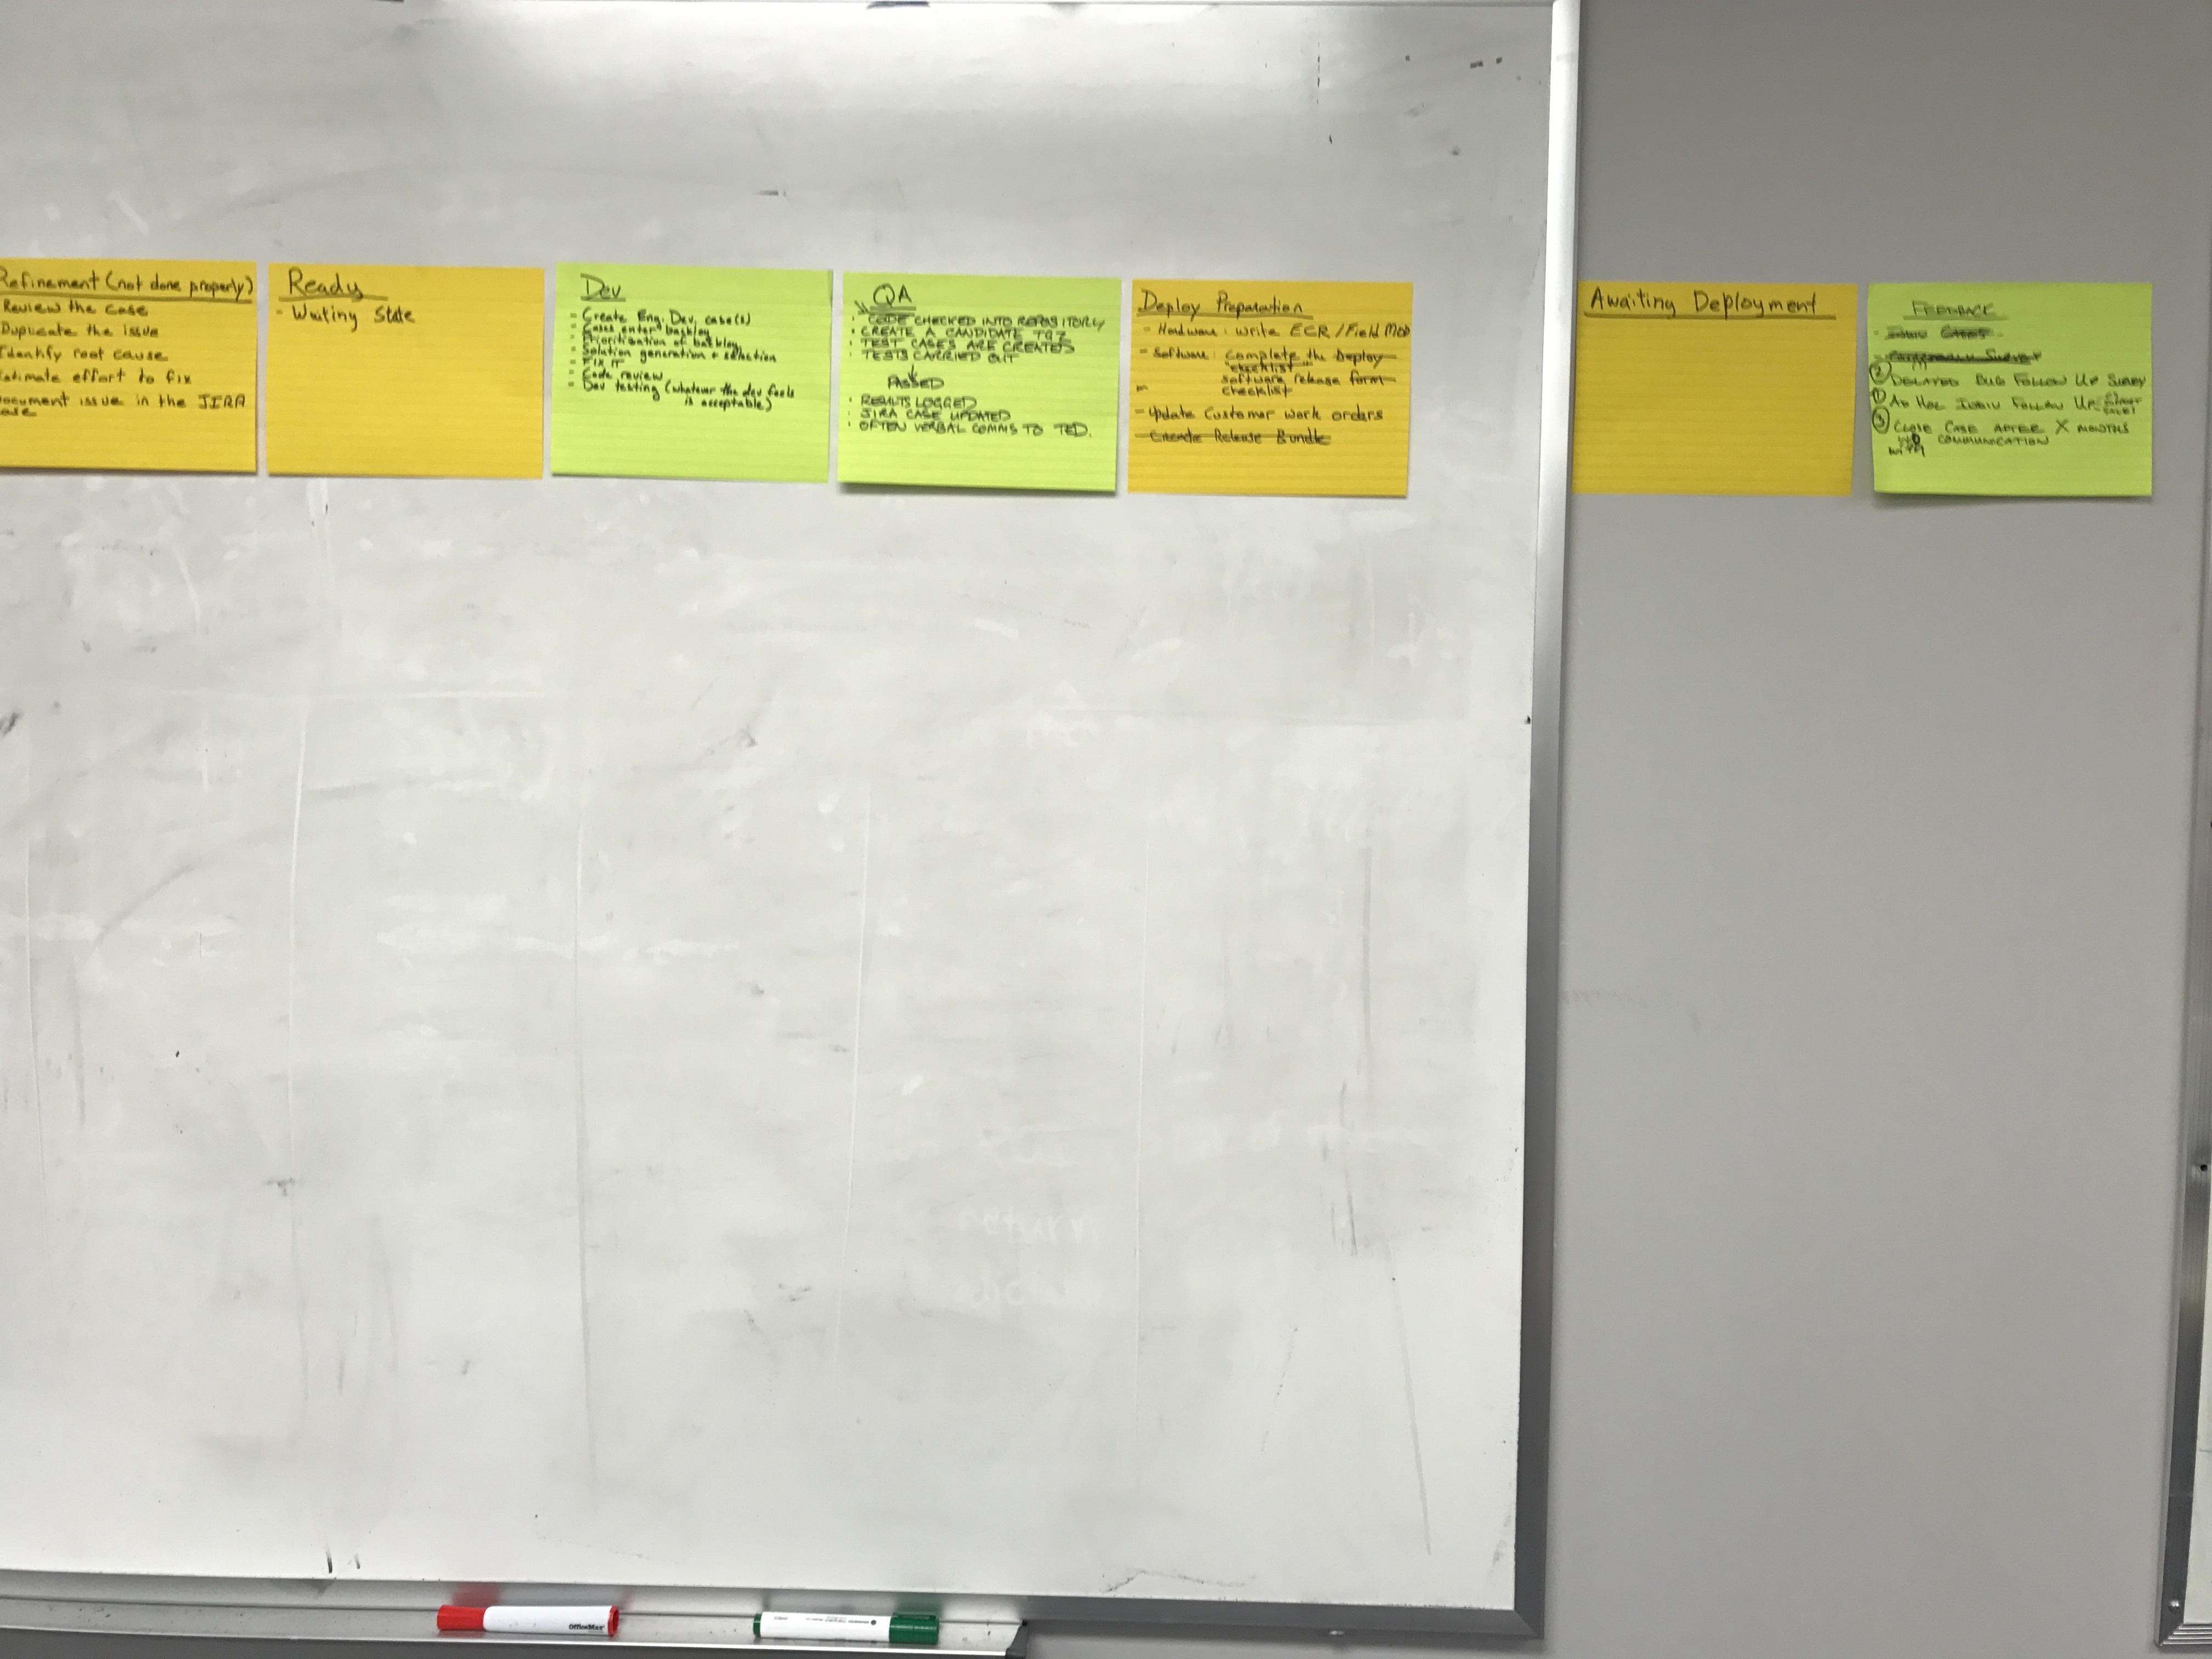 Refinement (not done properly)
Review the case
Duplicate the issue
Identify root cause
Estimate effort to fix
Document issue in the JIRA
case
Ready
- Waiting State
Dev
- Create Eng. Dev. case(s)
- Cases enter backlog
- Prioritization of backlog
- Solution generation + selection
- Fix it
- Code review
- Dev testing (whatever the dev feels
is acceptable)
QA
• CODE CHECKED INTO REPOSITORY
• CREATE A CANDIDATE TGZ
• TEST CASES ARE CREATED
• TESTS CARRIED OUT
PASSED
• RESULTS LOGGED
• JIRA CASE UPDATED
• OFTEN VERBAL COMMS TO TED.
Deploy Preparation
- Hardware: Write ECR/Field MOD
- Software: Complete the Deploy
"checklist"
software release form
checklist
- Update Customer work orders
- Create Release Bundle
Awaiting Deployment
FEEDBACK
② DELAYED BUG FOLLOW UP SURVEY
① AD HOC INDIV FOLLOW UP
③ CLOSE CASE AFTER X MONTHS
COMMUNICATION
WITH
OfficeMax